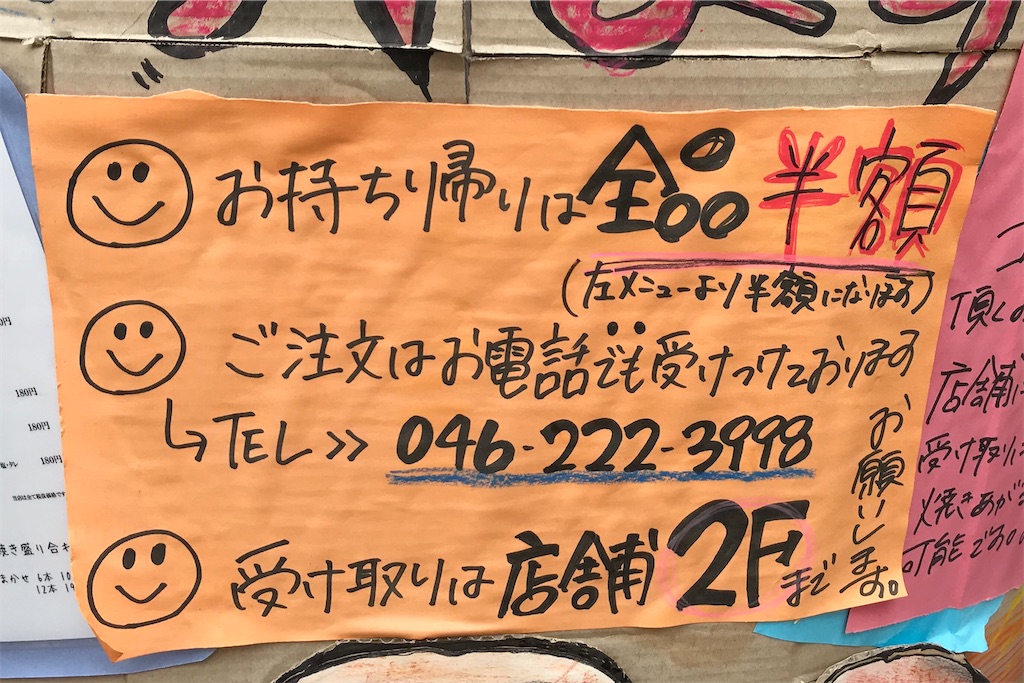 お持ち帰りは全品半額
(左メニューより半額になります)
ご注文はお電話でも受けつけております
→TEL>> 046-222-3998
受け取りは店舗2Fまで
お願いします。
180円
180円
180円
頂く
店舗
受け取り
焼きあが
可能です
焼き盛り合
まかせ 6本
12本